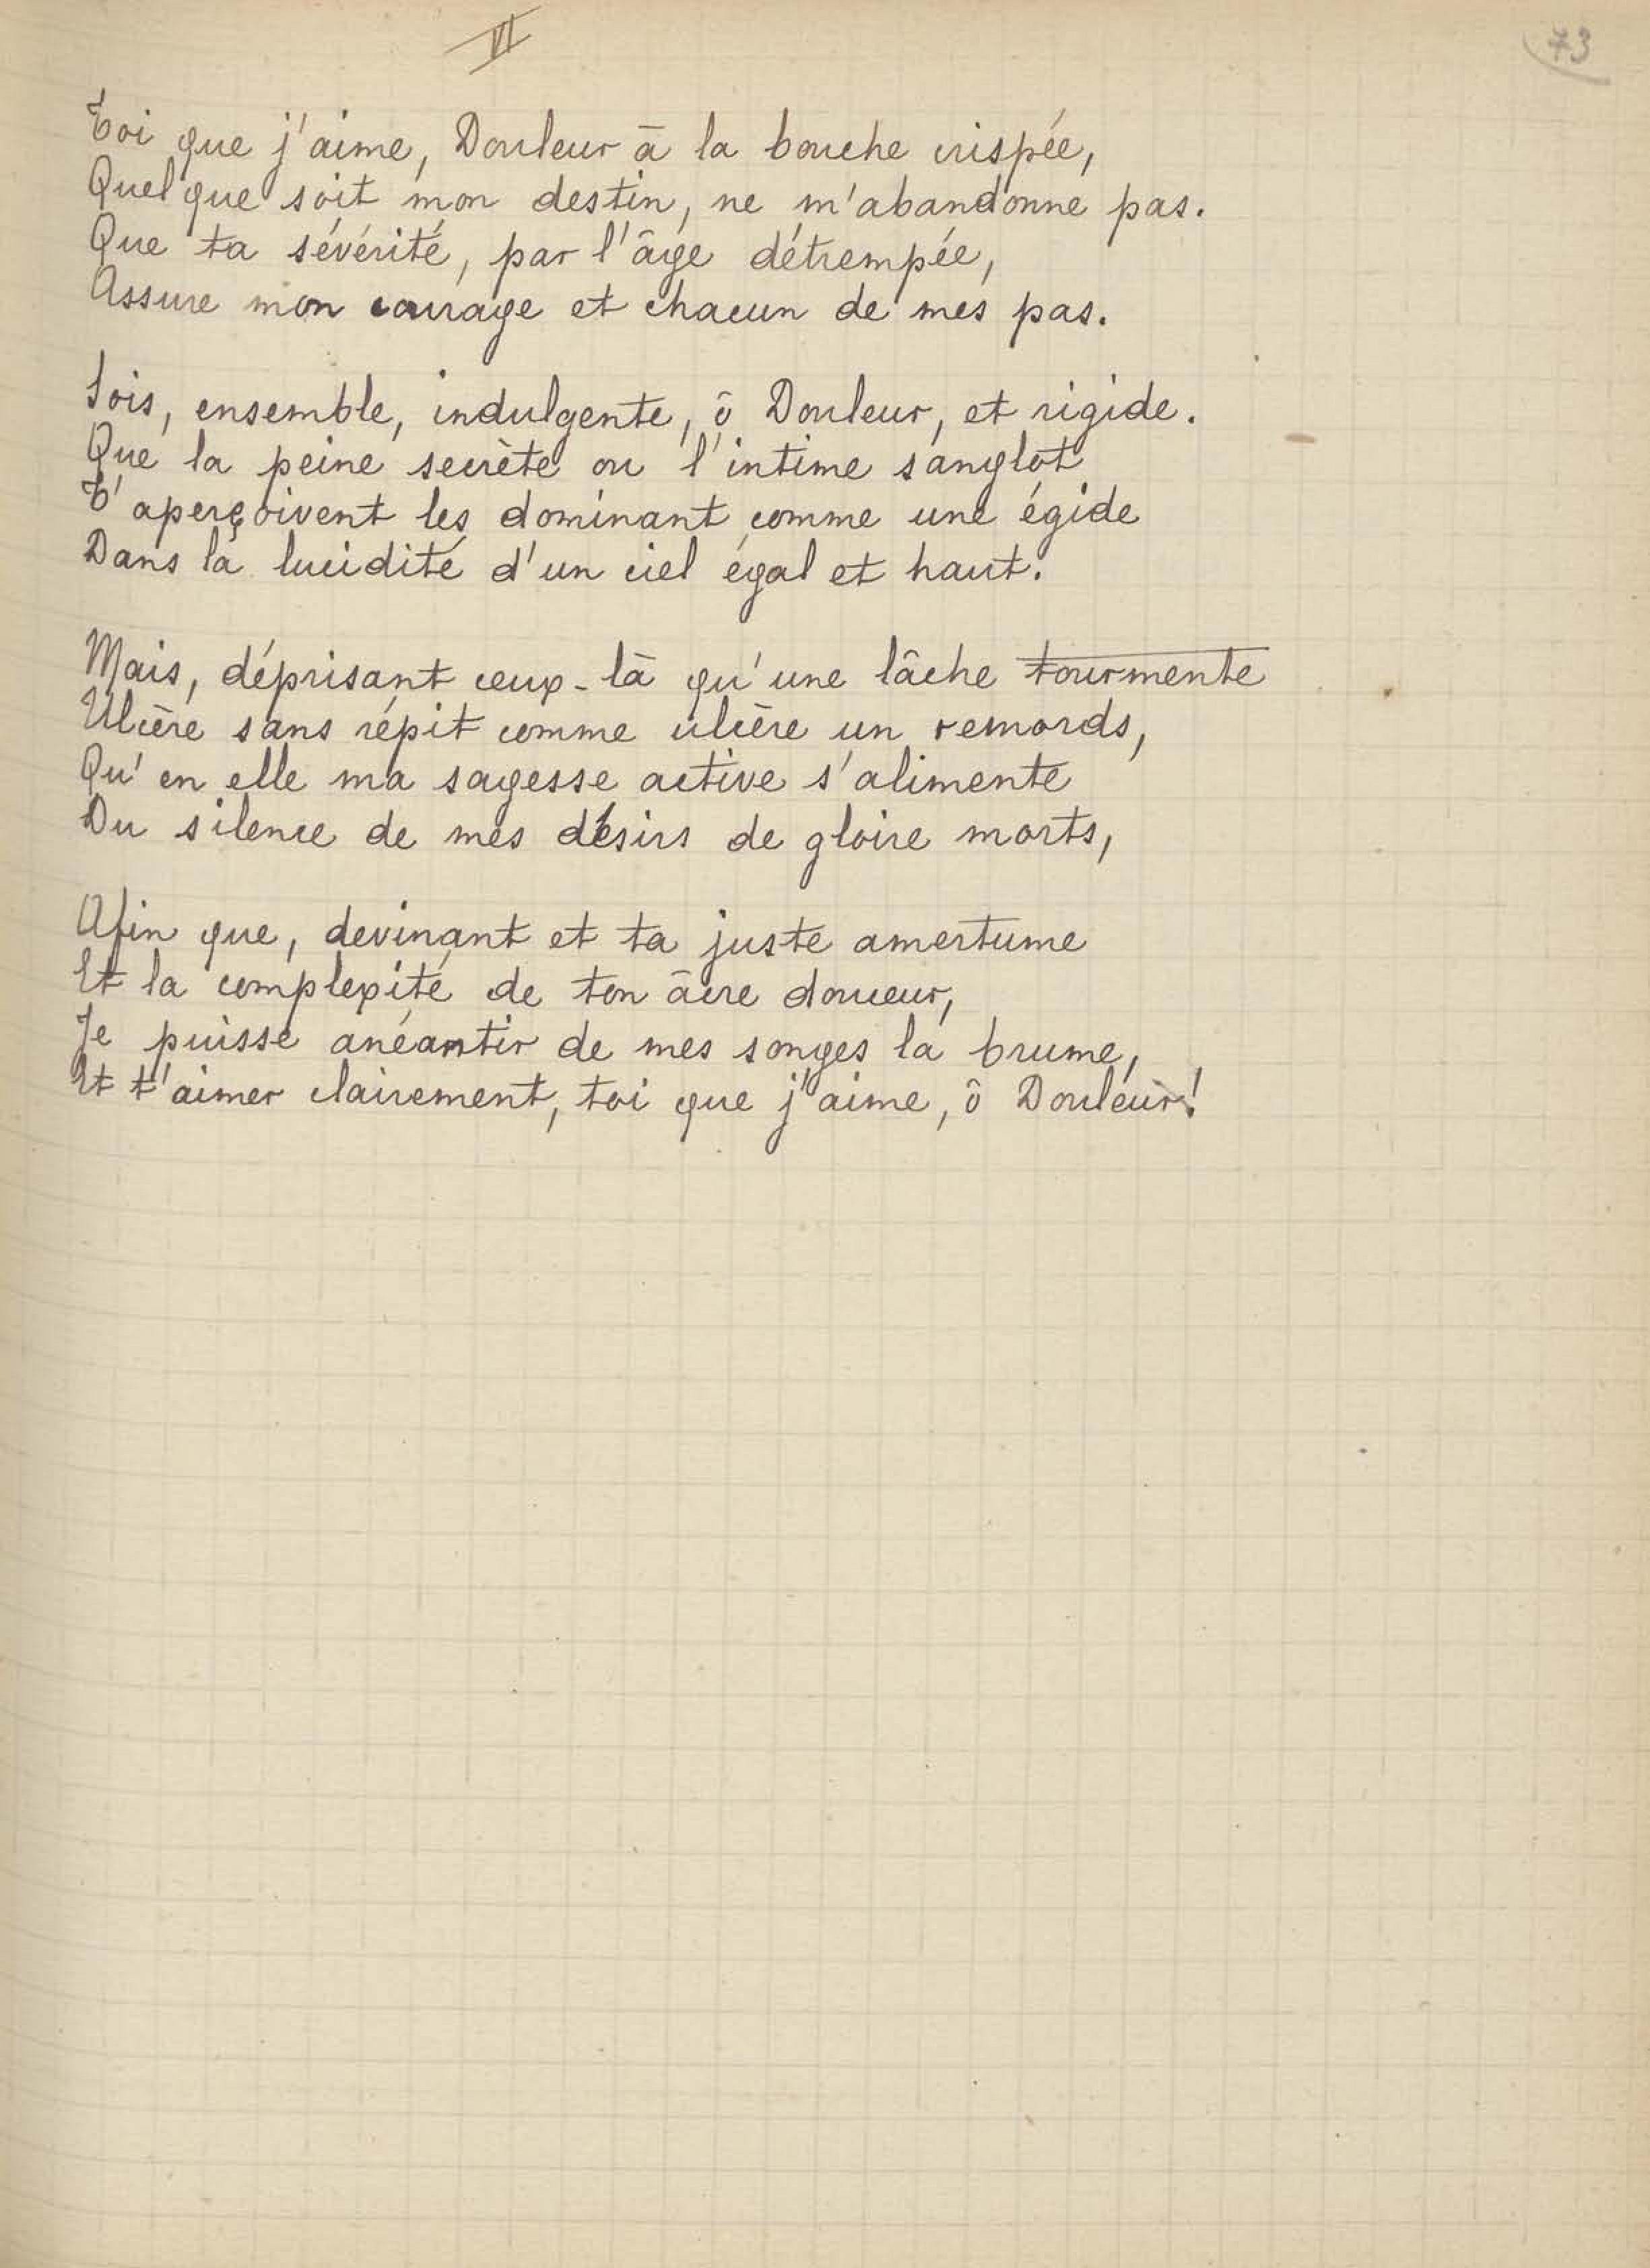 VI
73
Toi que j'aime, Douleur à la bouche crispée,
Quel que soit mon destin, ne m'abandonne pas.
Que ta sévérité, par l'âge détrempée,
Assure mon courage et chacun de mes pas.
Sois, ensemble, indulgente, ô Douleur, et rigide.
Que la peine secrète ou l'intime sanglot
T'aperçoivent les dominant comme une égide
Dans la lucidité d'un ciel égal et haut.
Mais, déprisant ceux-là qu'une lâche tourmente
Ulcère sans répit comme ulcère un remords,
Qu'en elle ma sagesse active s'alimente
Du silence de mes désirs de gloire morts,
Afin que, devinant et ta juste amertume
Et la complexité de ton âcre douceur,
Je puisse anéantir de mes songes la brume,
Et t'aimer clairement, toi que j'aime, ô Douleur!